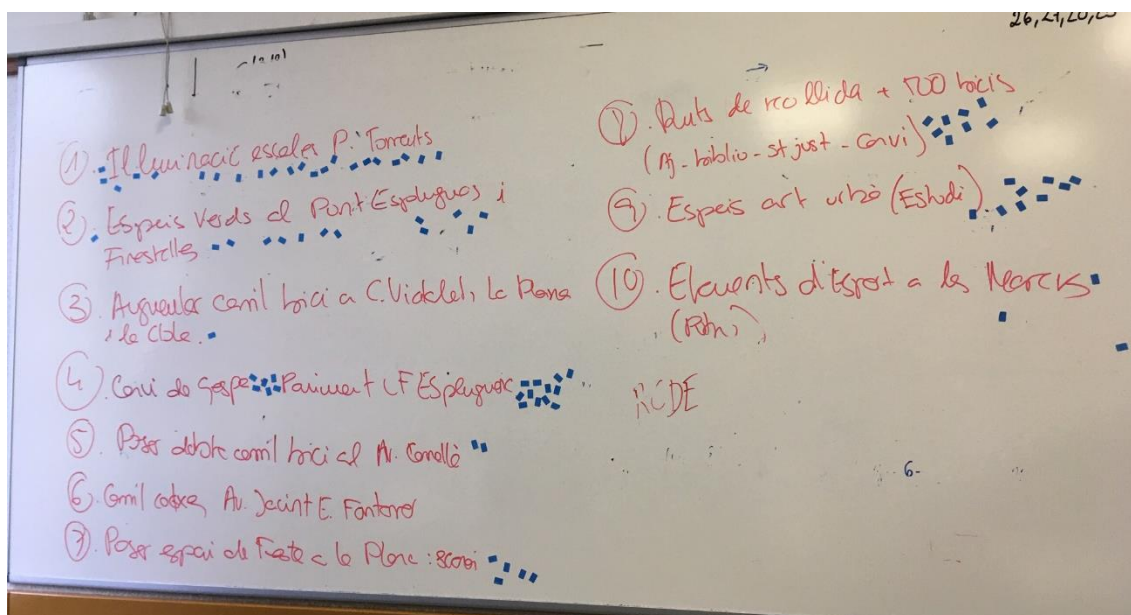 26, 27, 28, 29
① Il·luminació escales P. Torrents
② Espais Verds al Pont Esplugues i
Finestrelles
③ Augmentar carril bici a C. Vidalet, la Plana
i la
④ Canvi de Gespa Paviment CF Esplugues
⑤ Poser doble carril bici al Av. Cornellà
⑥ Carril cotxes Av. Jacint E.
⑦ Poser espai de Festa a la Plana:
⑧ Punts de recollida + 500 bicis
(Aj - biblio - st just - Canvi)
⑨ Espais art urbà (Estudi)
⑩ Elements d'Esport a les
RCDE
6-